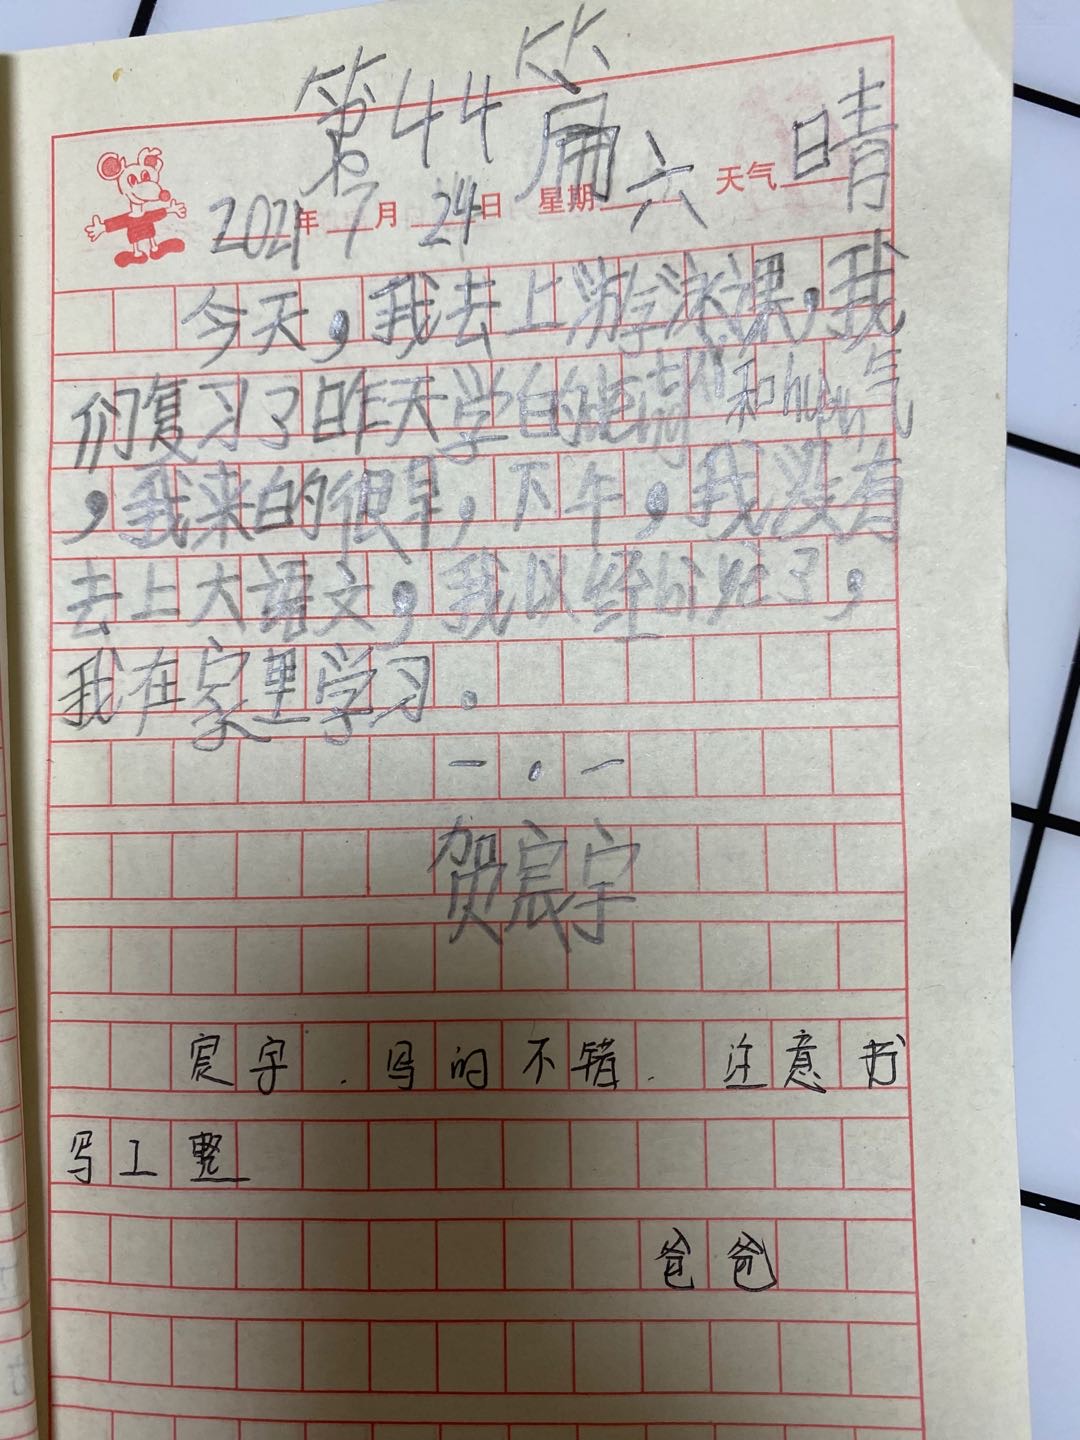 第44篇
2021年7月24日 星期六 天气晴
今天，我去上游泳课，我
们复习了昨天学白的 和hū气
，我来的很早，下午，我没有
去上大语文，我以经 了，
我在家里学习。
一.一
贺宸宇
宸宇.写的不错.注意书
写工整
爸爸